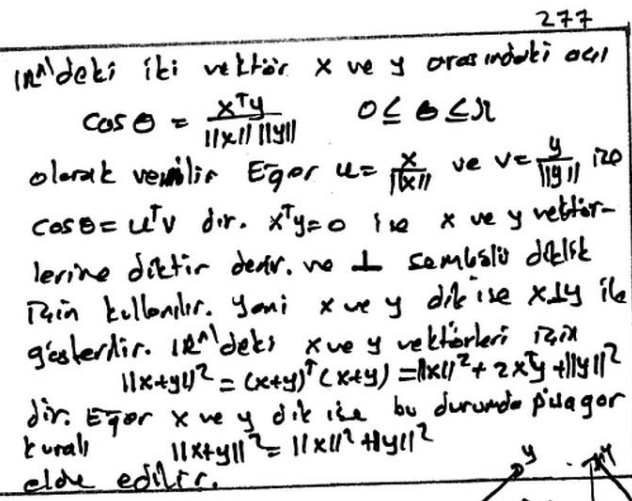 277
IRⁿ'deki iki vektör x ve y arasındaki açı
cos θ = xᵀy / ||x|| ||y||    0 ≤ θ ≤ π
olarak verilir Eğer u = x / ||x|| ve v = y / ||y|| ise
cos θ = uᵀv dır. xᵀy = 0 ise x ve y vektör-
lerine diktir denir. ve ⊥ sembolü diklik
için kullanılır. Yani x ve y dik ise x⊥y ile
gösterilir. IRⁿ'deki x ve y vektörleri için
||x+y||² = (x+y)ᵀ(x+y) = ||x||² + 2xᵀy + ||y||²
dir. Eğer x ve y dik ise bu durumda pisagor
kuralı ||x+y||² = ||x||² + ||y||²
elde edilir.
y